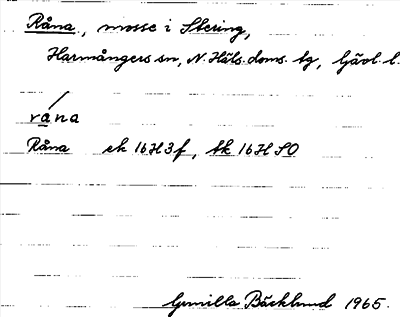 Råna, mosse i Stering,
Harmångers sn, N. Häls. doms. tg, Gävl. l.
råna
Råna ek 16H3f, tk 16H SO
Gunilla Bäcklund 1965.